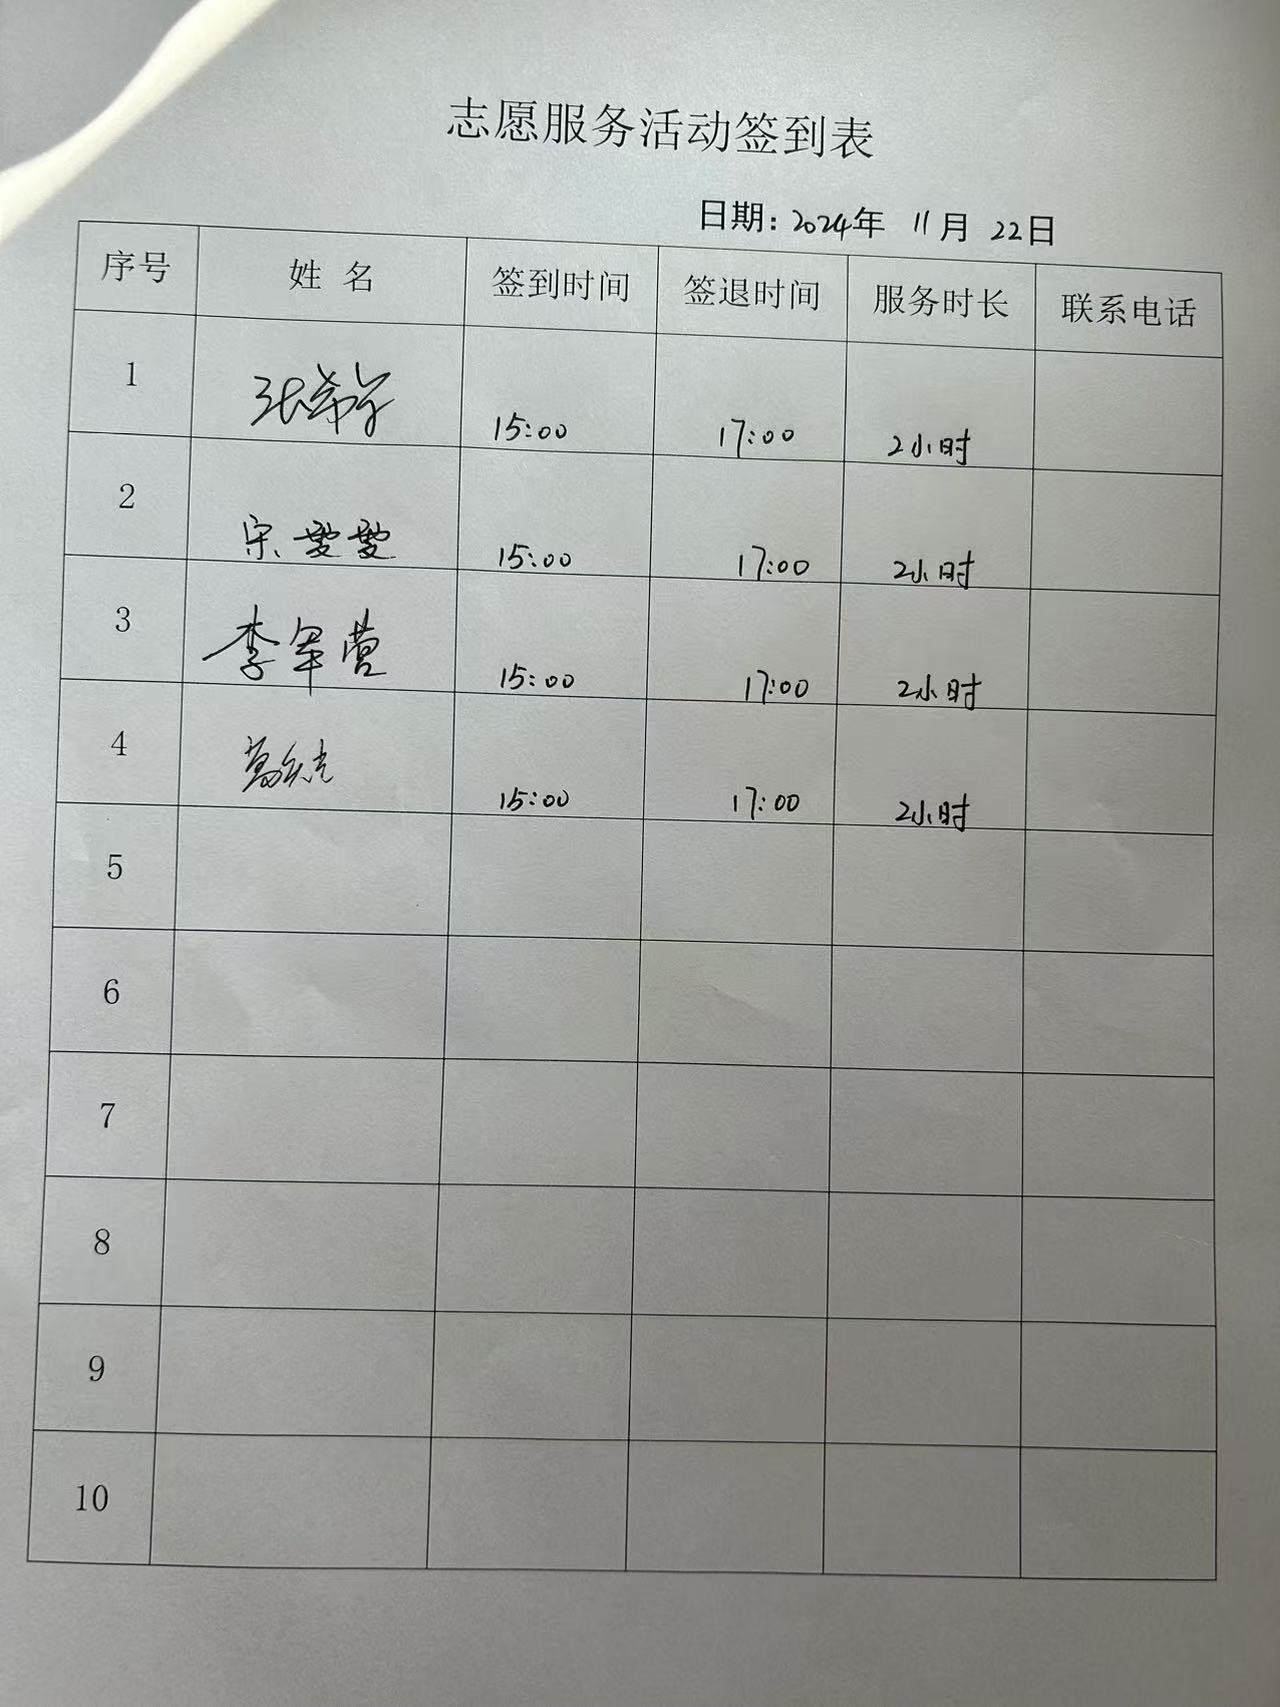 志愿服务活动签到表
日期: 2024年 11月 22日
序号 姓名 签到时间 签退时间 服务时长 联系电话
1 张 15:00 17:00 2小时
2 宋雯雯 15:00 17:00 2小时
3 李军营 15:00 17:00 2小时
4 15:00 17:00 2小时
5
6
7
8
9
10